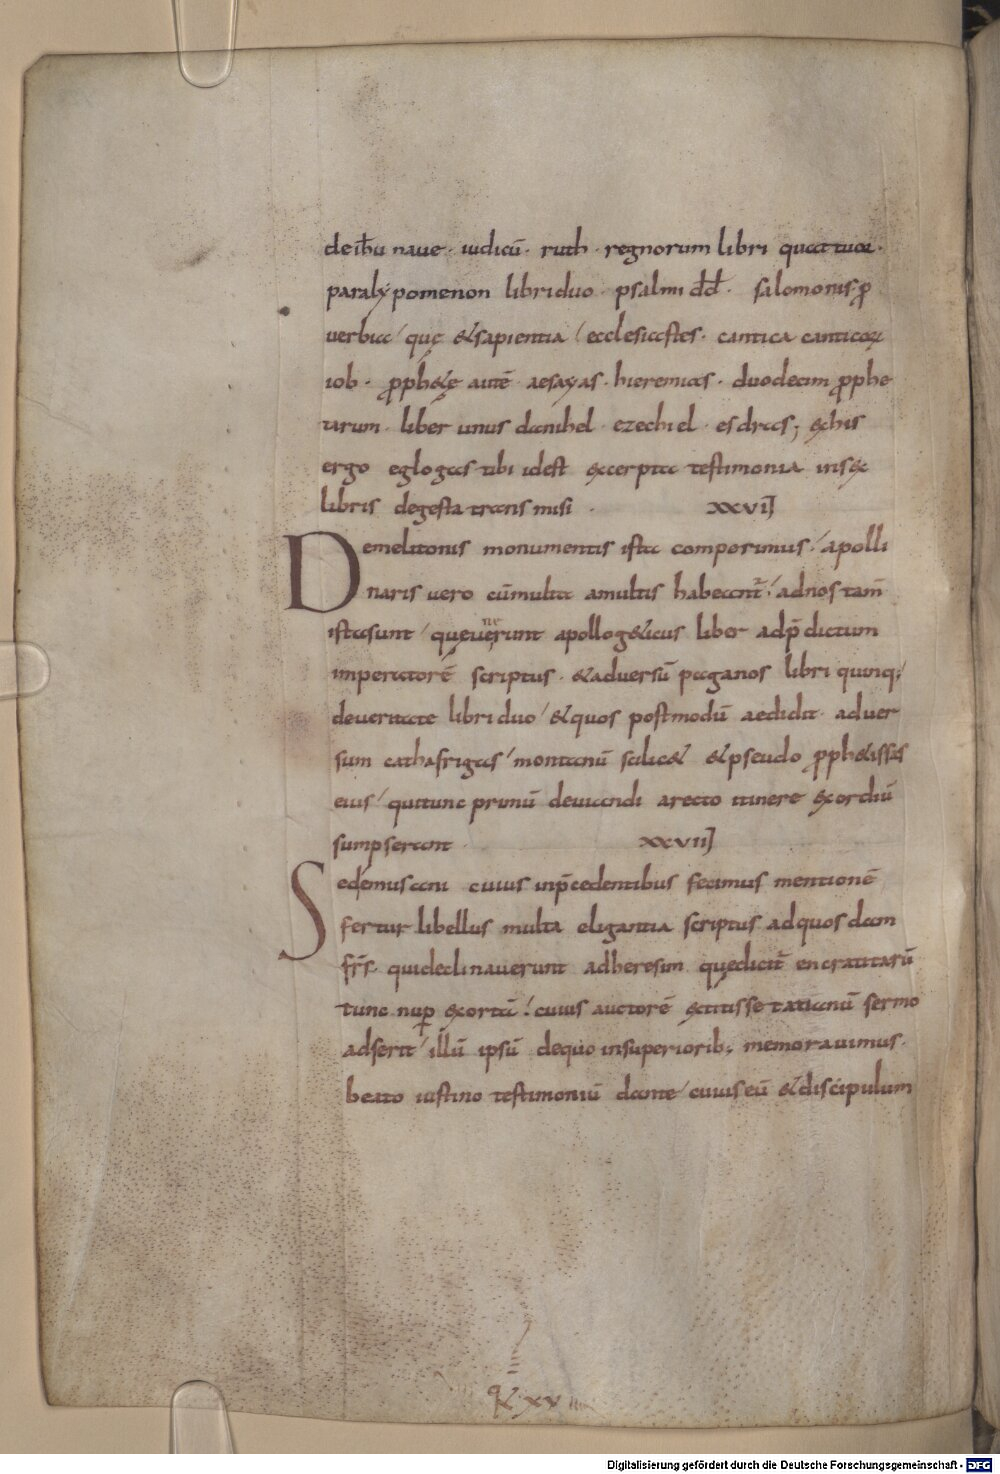 deih̅u naue · iudicū · ruth · regnorum libri quattuor ·
paralẏpomenon libri duo · psalmi d̅d̅ · salomonis ꝓ
uerbia / quę &sapientia / ecclesiastes · cantica canticoꝝ
iob · ꝓph&ę autē aesaẏas · hieremias · duodecim ꝓphe
tarum · liber unus danihel · ezechiel · esdras; exhis
ergo eglogas tibi idest excerpta testimonia insex
libris degesta transmisi · XXVI
Demelitonis monumentis ista comperimus / apolli
naris uero cūmulta amultis habeant̄ / adnos tam̄
istasunt / queuenerunt apollog&icus liber adp̄dictum
imperatorē scriptus · &aduersū paganos libri quinq;
deueritate libri duo / &quos postmodū aedidit · aduer
sum cathafrigas / montanū scilic& &pseudo ꝓph&issas
eius / quitunc primū deuiandi arecto itinere exordiū
sumpserant · XXVII
Sedemusani cuius inp̄cedentibus fecimus mentionē
fertur libellus multa eligantia scriptus adquosdam
fr̄s · quideclinauerunt adheresim quędicit̄ encratitarū
tunc nuꝑ exortā / cuius auctorē extitisse tatianū sermo
adserit / illū ipsū dequo insuperiorib; memorauimus ·
beato iustino testimoniū dante / cuius eū &discipulum
Digitalisierung gefördert durch die Deutsche Forschungsgemeinschaft - DFG